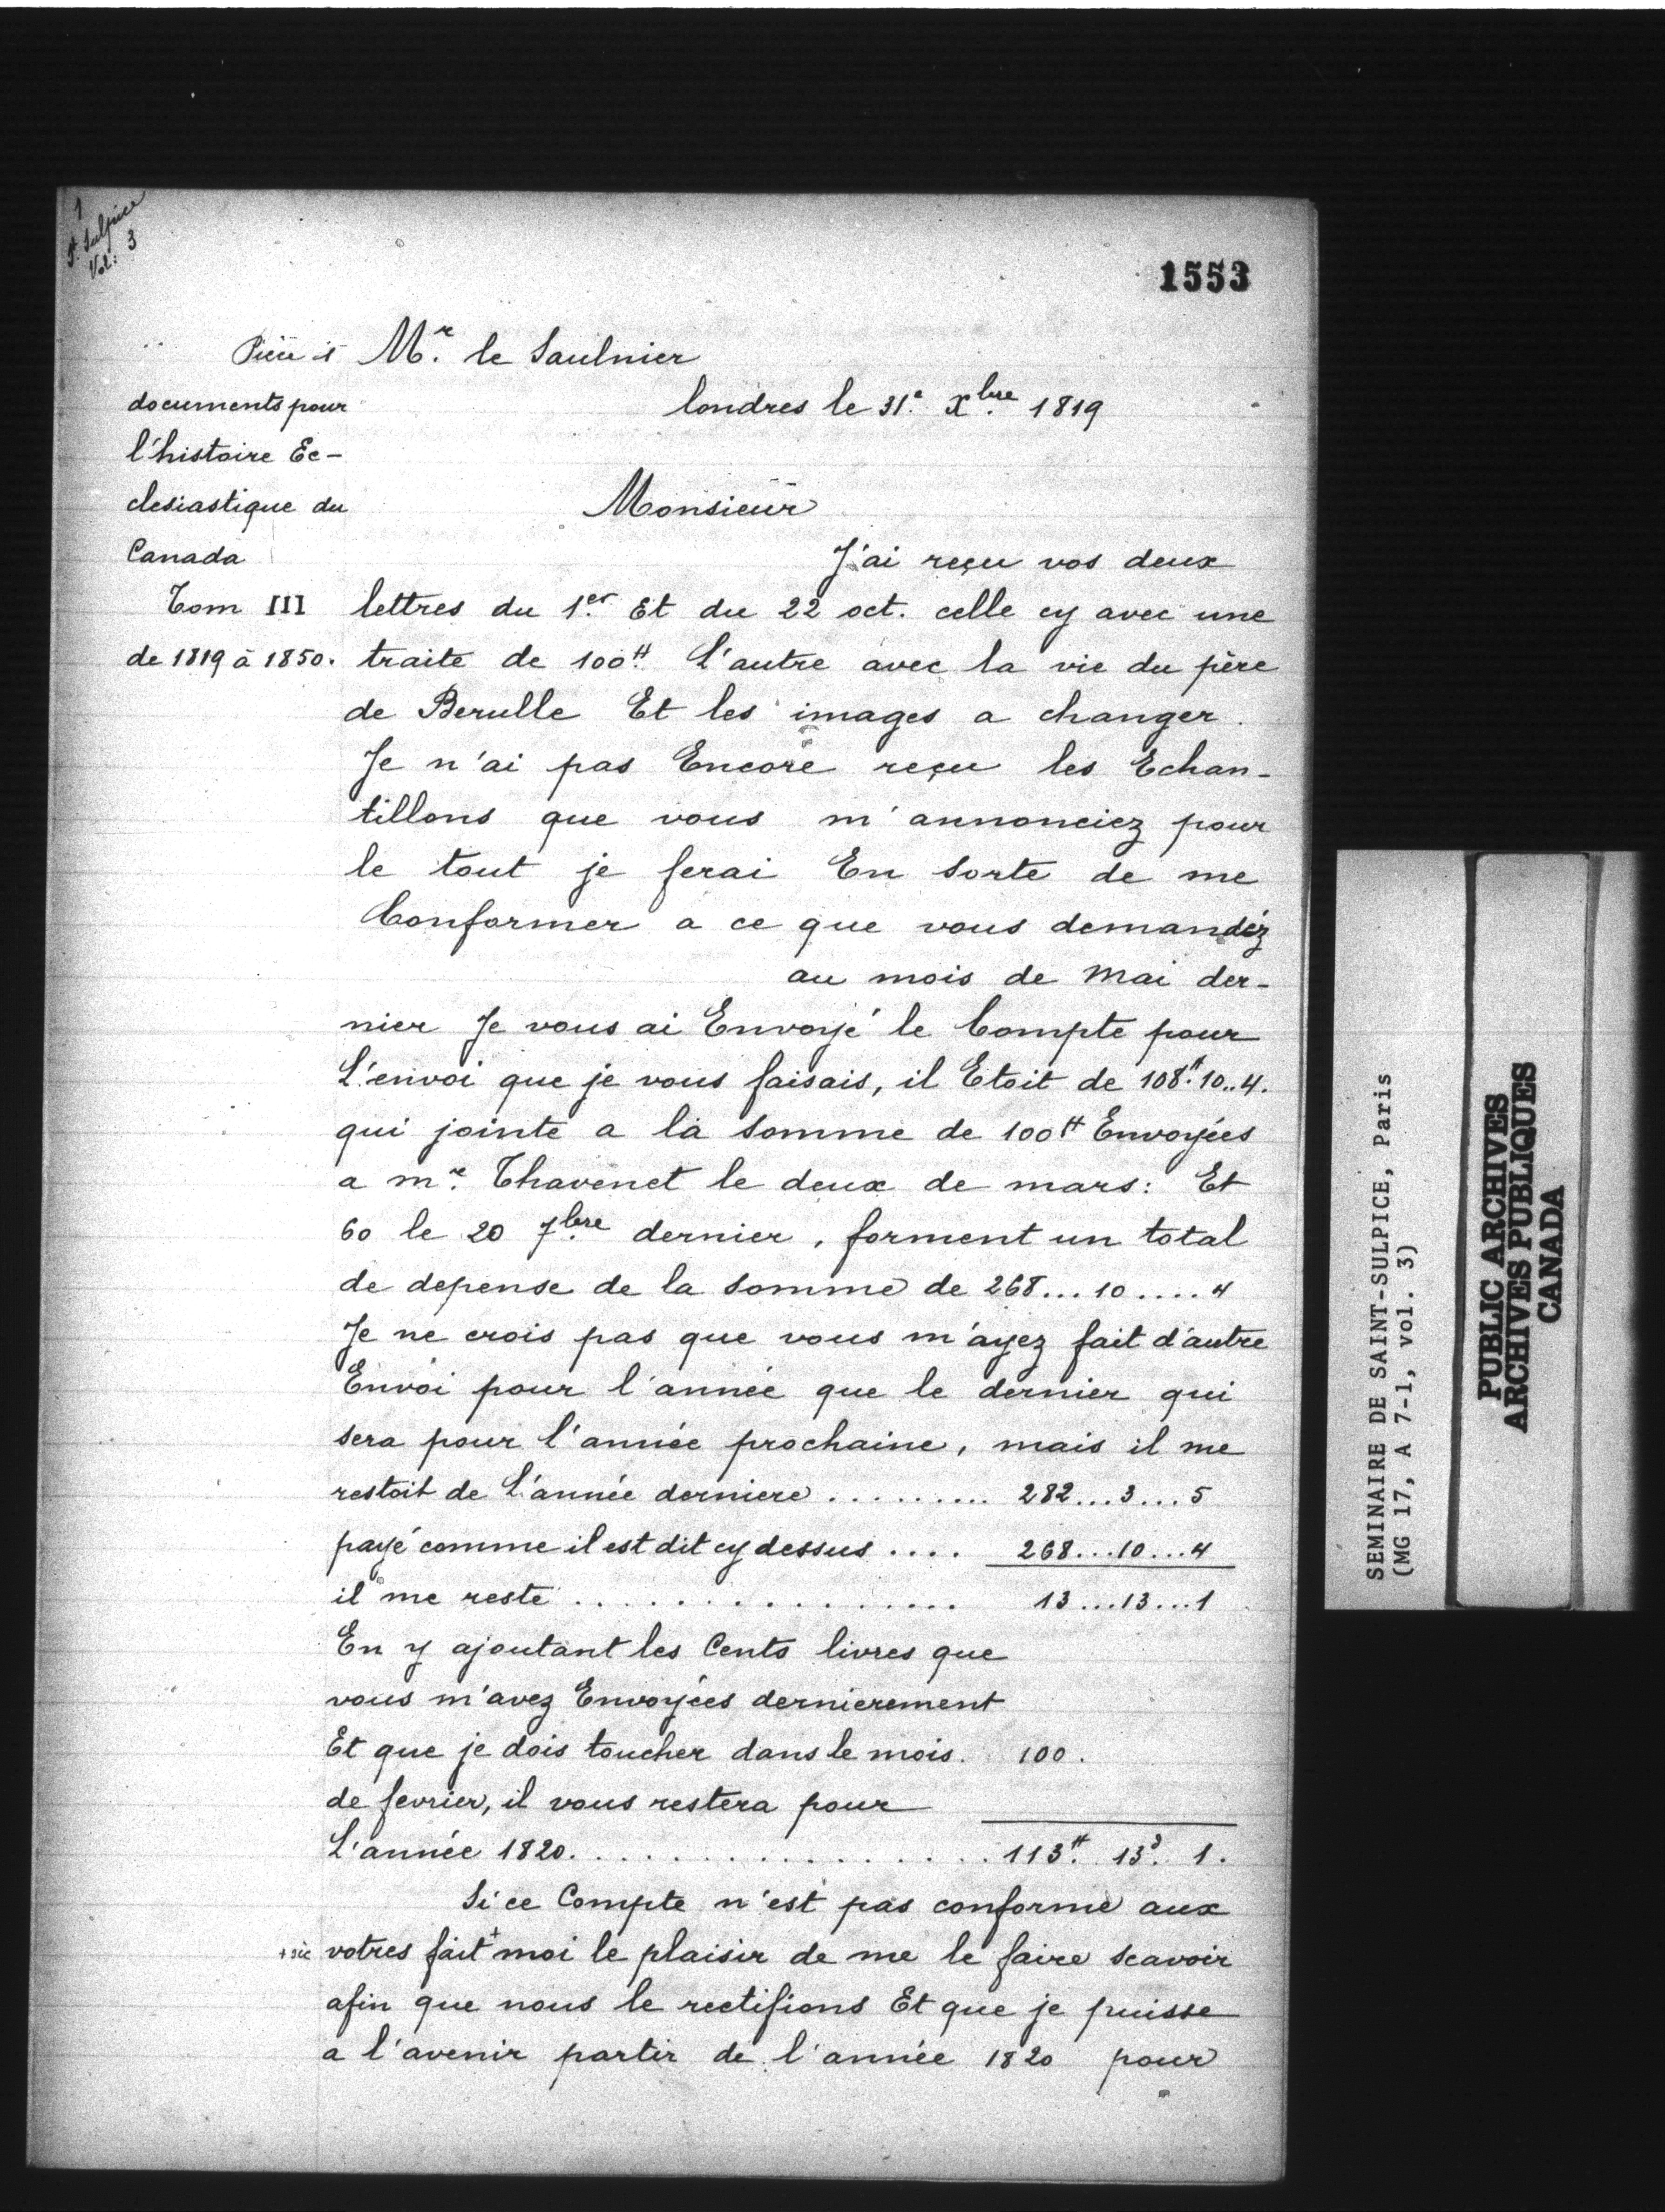 1
St. Sulpice
Vol: 3
1553
Pièce 1 Mr. le Saulnier
documents pour
l'histoire Ec-
clesiastique du
Canada
Tom III
de 1819 à 1850.
londres le 31e. Xbre. 1819
Monsieur
J'ai reçu vos deux
lettres du 1er. Et du 22 oct. celle cy avec une
traite de 100#. L'autre avec la vie du père
de Berulle Et les images a changer.
Je n'ai pas Encore reçu les Echan-
tillons que vous m'annonciez pour
le tout je ferai En sorte de me
Conformer a ce que vous demandéz
au mois de Mai der-
nier Je vous ai Envoyé le Compte pour
L'envoi que je vous faisais, il Etoit de 108#. 10..4.
qui jointe a la somme de 100# Envoyées
a mr. Thavenet le deux de mars: Et
60 le 20 7bre. dernier, forment un total
de depense de la somme de 268...10....4
Je ne crois pas que vous m'ayez fait d'autre
Envoi pour l'année que le dernier qui
sera pour l'année prochaine, mais il me
restoit de L'année derniere ......... 282...3...5
payé comme il est dit cy dessus .... 268...10...4
il me reste ................ 13...13...1
En y ajoutant les Cents livres que
vous m'avez Envoyées dernierement
Et que je dois toucher dans le mois. 100.
de fevrier, il vous restera pour
L'année 1820. ................ 113#. 13s. 1.
Si ce Compte n'est pas conforme aux
+ sic votres fait+ moi le plaisir de me le faire scavoir
afin que nous le rectifions Et que je puisse
a l'avenir partir de l'année 1820 pour
SEMINAIRE DE SAINT-SULPICE, Paris
(MG 17, A 7-1, vol. 3)
PUBLIC ARCHIVES
ARCHIVES PUBLIQUES
CANADA